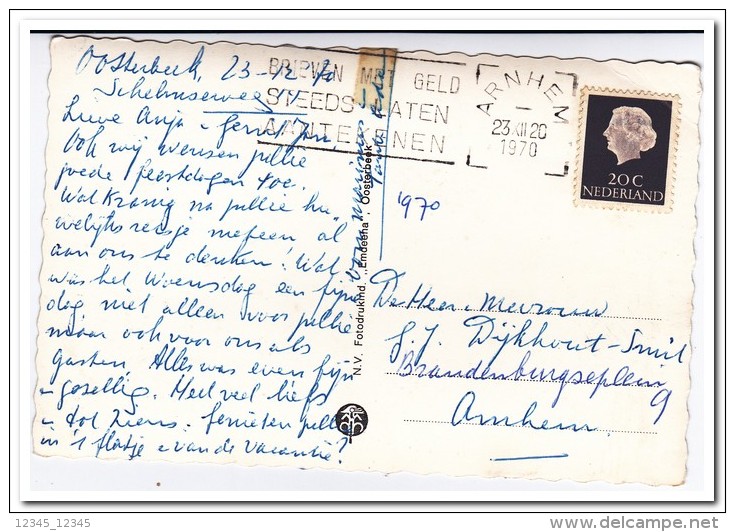 Oosterbeek, 23-12-70
Schelmseweg
Lieve Anja + Gerrit Jan
Ook wij wensen jullie
goede feestdagen toe.
Wat kranig na jullie hu„
welijks reisje meteen al
aan ons te denken! Wat
was het Woensdag een fijne
dag niet alleen voor jullie
maar ook voor ons als
gasten. Alles was even fijn
gezellig. Heel veel liefs
tot ziens. Genieten jullie
in 't flatje van de vacantie?
oom Marinus
tante
BRIEVEN MET GELD
STEEDS LATEN
AANTEKENEN
ARNHEM
1
23 XII 20
1970
20 C
NEDERLAND
1970
N.V. Fotodrukind. „Emdeeha", Oosterbeek
De Heer en Mevrouw
G. J. Dijkhout-Smit
Brandenburgseplein
9
Arnhem
12345_12345
delcampe.net